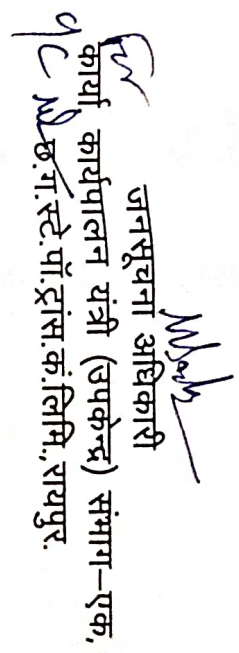 जनसूचना अधिकारी
कार्या कार्यपालन यंत्री (उपकेन्द्र) संभाग–एक,
छ.ग.स्टे.पॉ.ट्रांस.कं.लिमि.,रायपुर.